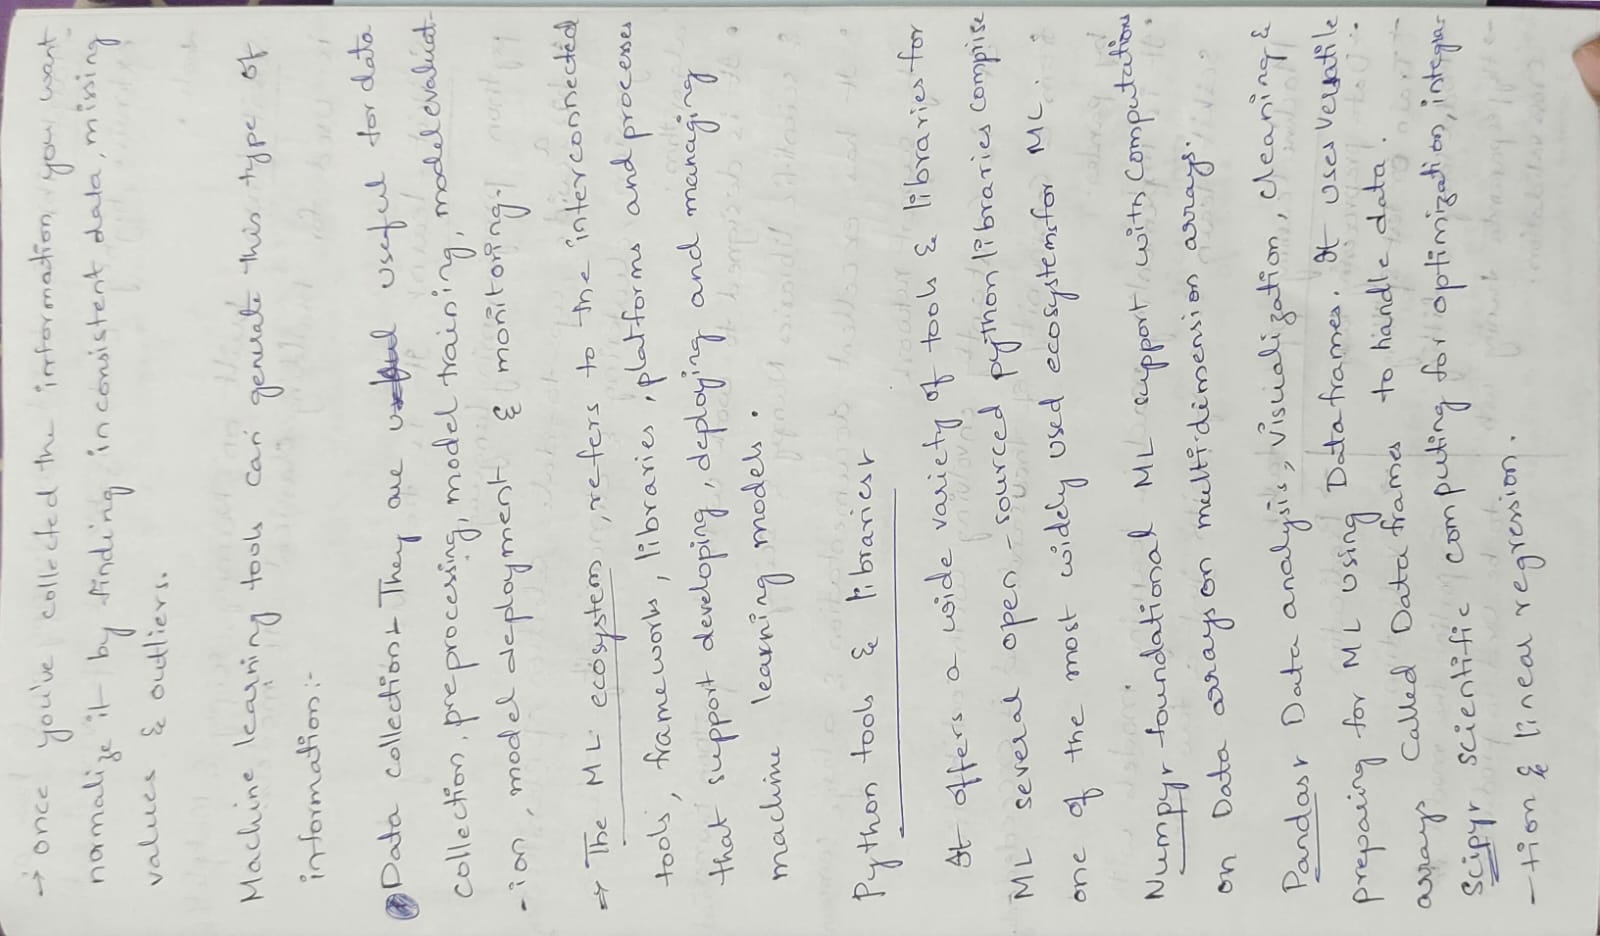 → once you've collected the information you want
normalize it by finding inconsistent data, missing
values & outliers.
Machine learning tools can generate this type of
information:-
Data collection:- They are useful for data
collection, preprocessing, model training, model evaluat-
-ion, model deployment & monitoring.
⇒ The ML ecosystem, refers to the interconnected
tools, frameworks, libraries, platforms and processes
that support developing, deploying and managing
machine learning models.
Python tools & libraries:-
It offers a wide variety of tools & libraries for
ML several open-sourced python libraries comprise
one of the most widely used ecosystems for ML.
Numpy:- foundational ML support with computations
on Data arrays on multi-dimension arrays.
Pandas:- Data analysis, visualization, cleaning &
preparing for ML using Dataframes. It uses versatile
arrays called Data frames to handle data.
Scipy:- scientific computing for optimization, integra-
-tion & linear regression.